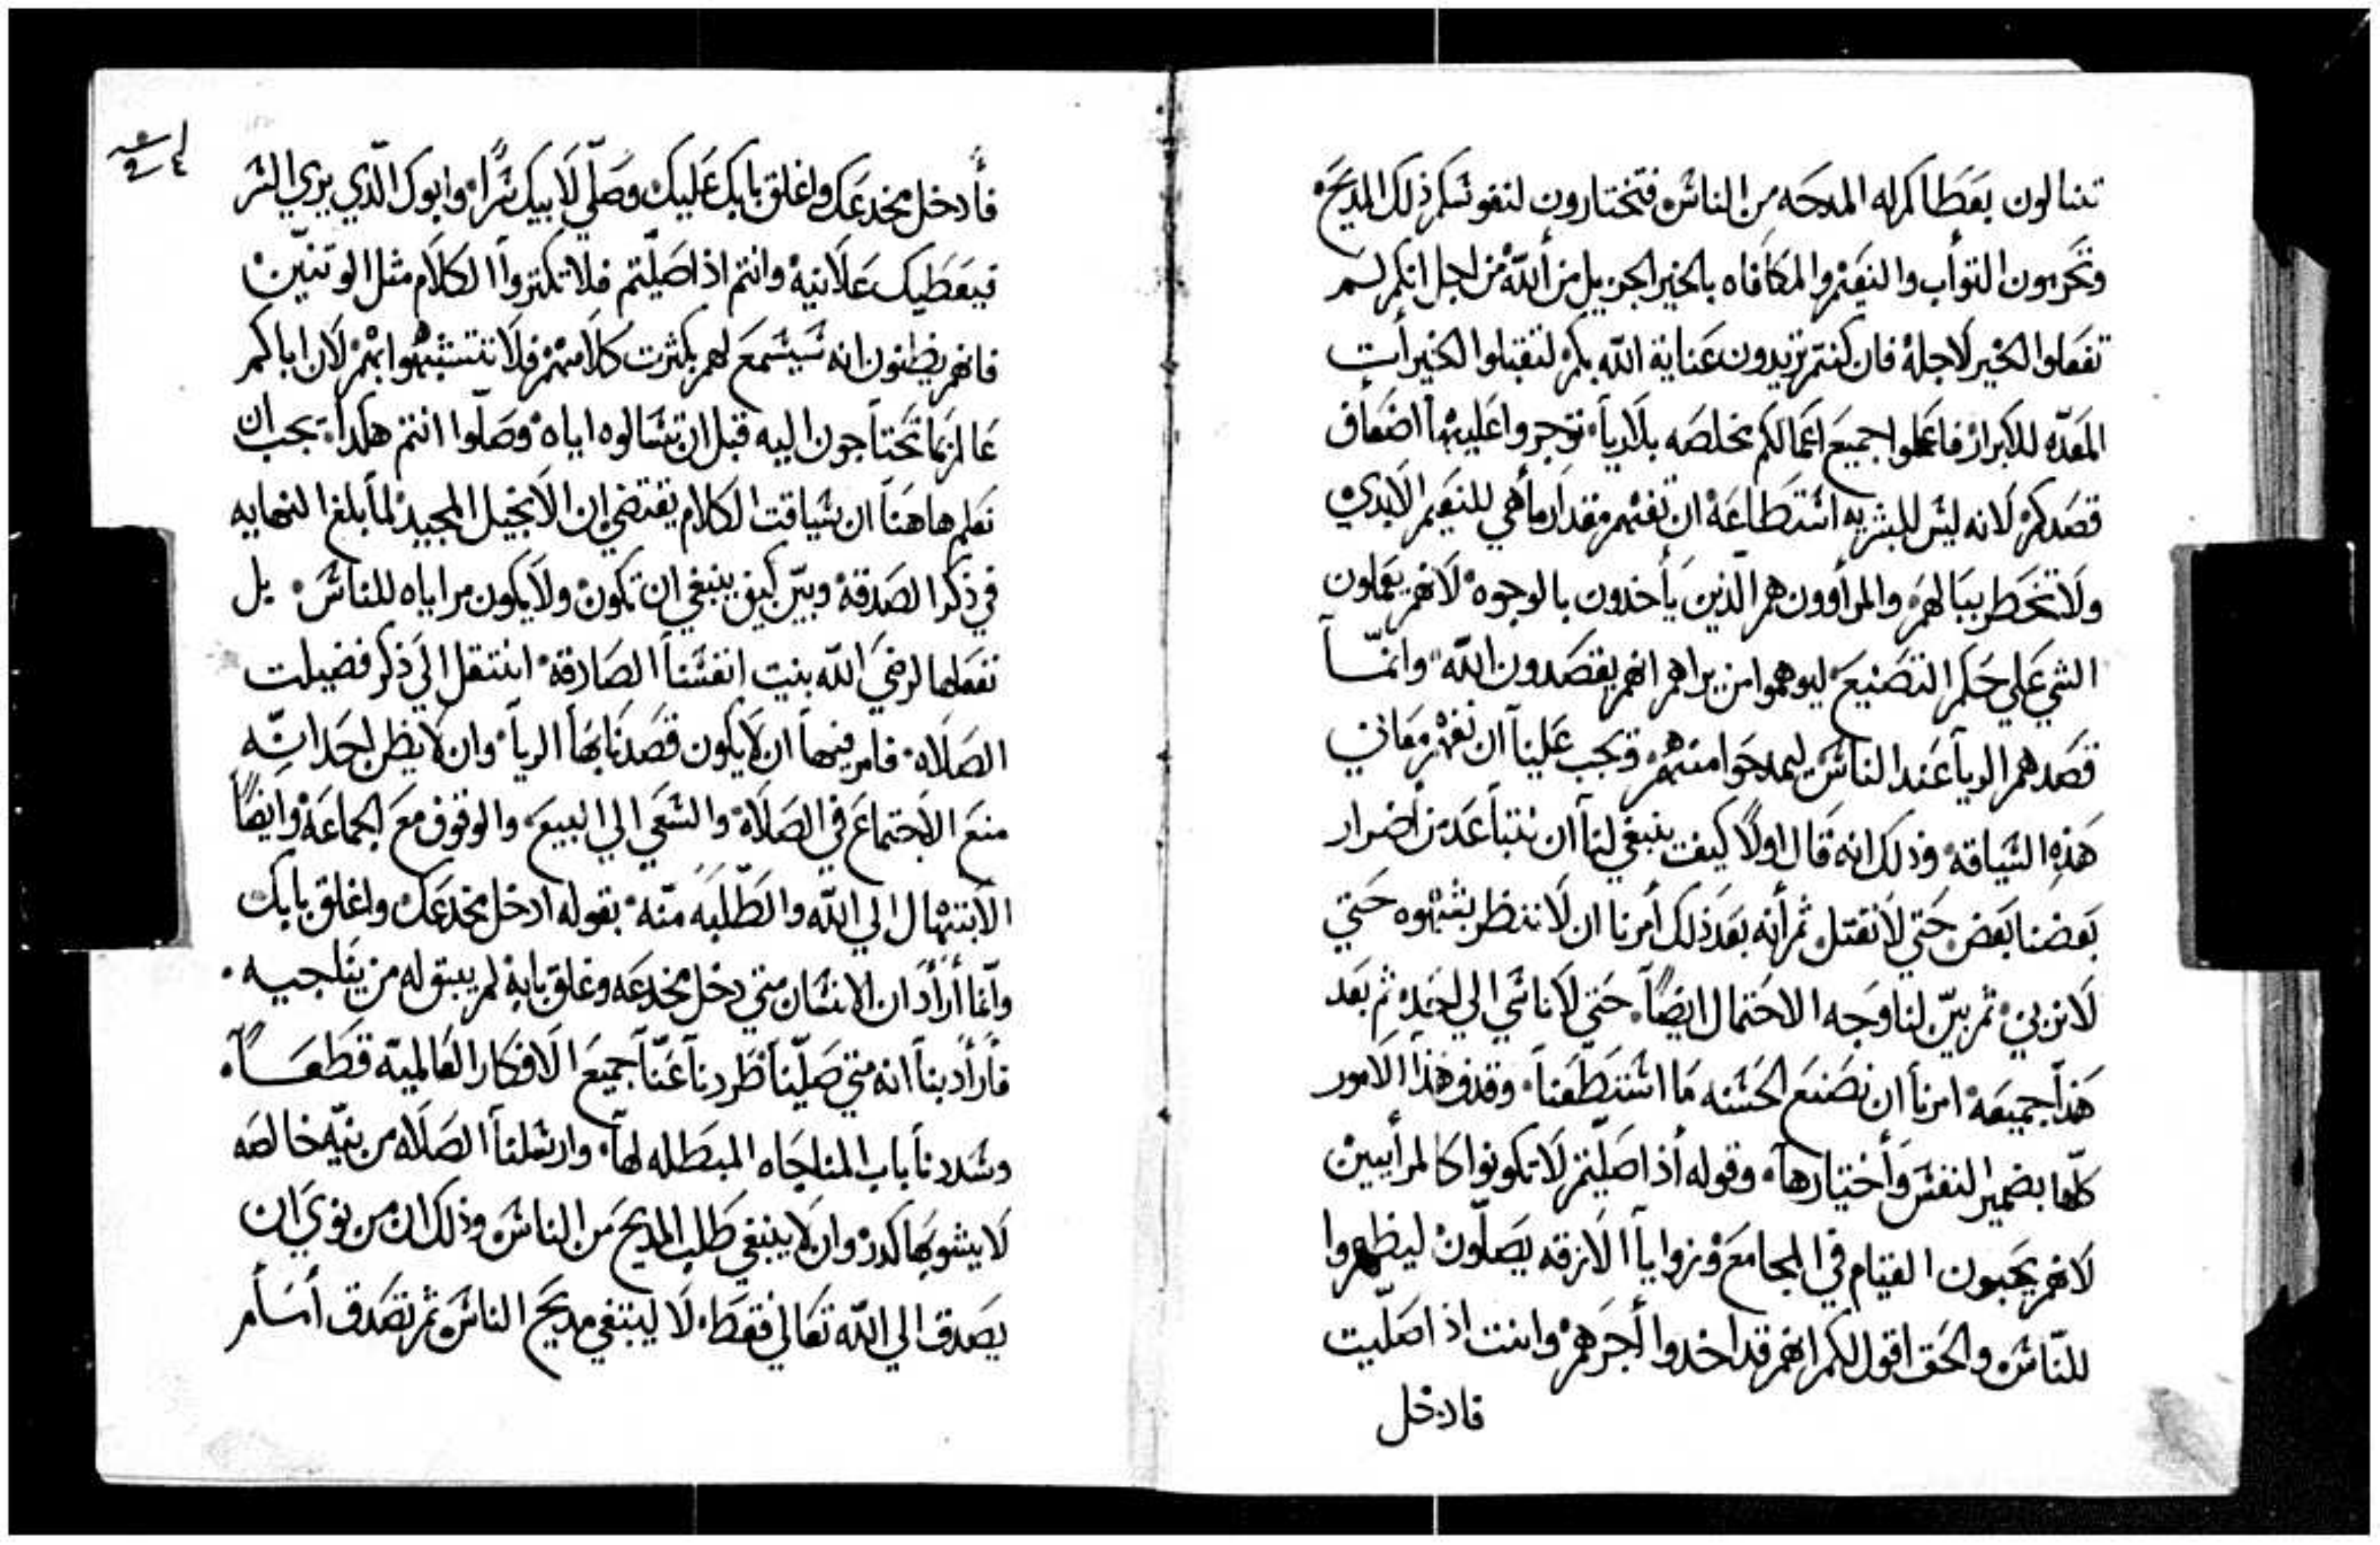 تنالون بعطاكم له المدحه من الناس فتختارون لنفوسكم ذلك المديح
وتحرمون التواب والنعيم والمكافاه بالخير الجزيل من الله من اجل انكم لم
تفعلوا الخير لاجله فان كنتم تريدون عناية الله بكم لتقبلوا الخيرات
المعدّه للابرار فاعملوا جميع اعمالكم مخلصه بلا ريا توجروا عليها اضعاف
قصدكم لانه ليس للبشريه استطاعة ان تفهم مقدار ما هي للنعيم الابدي
ولا تخطر ببالهم والمراوون هم الذين ياخدون بالوجوه لانهم يعملون
الشي علي حكم التصنيع ليوهموا من يراهم انهم يقصدون الله وانمّا
قصدهم الريا عند الناس ليمدحوا منهم ويجب علينا ان نفهم معاني
هذه السياقه وذلك انه قال اولاً كيف ينبغي لنا ان نتباعد من اضرار
بعضنا بعض حتي لا نقتل ثم انه بعد ذلك امرنا ان لا ننظر بشهوه حتي
لا نزني ثم بيّن لنا وجه الاحتمال ايضاً حتي لا ناسي الي احد ثم بعد
هذا جميعه امرنا ان نصنع الحسنه ما استطعنا وقدف هذا الامور
كلّها بضمير النفس واختيارها وقوله اذا صليتم لا تكونوا كالمراييين
لانهم يحبون القيام في المجامع وزوايا الازقه يصلّون ليظهروا
للنّاس والحق اقول لكم انهم قد اخدوا اجرهم وانت اذا صلّيت
فادخل
فادخل مخدعك واغلق بابك عليك وصلّي لابيك سراً وابوك الّذي يري السر
فيعطيك علانيه وانتم اذا صليتم فلا تكتروا الكلام مثل الوتنيّن
فانهم يظنون انه سيسمع لهم بكثرت كلامهم فلا تتشبهوا بهم لان اباكم
عالم بما تحتاجون اليه قبل ان تسالوه اياه وصلّوا انتم هكدا يجب ان
نعلم هاهنا ان سياقت الكلام يقتضي ان الانجيل المجيد لما بلغ النهايه
في ذكر الصدقة وبيّن كيف ينبغي ان تكون ولا يكون مراياه للناس بل
نفعلها لرضي الله بنيت انفسنا الصادقة انتقل الي ذكر فضيلت
الصلاه فامر فيها ان لا يكون قصدنا بها الريا وان لا يظن احد انّه
منع الاجتماع في الصلاة والسعي الي البيع والوقوف مع الجماعة وايضاً
الابتهال الي الله والطلبه منّه بقوله ادخل مخدعك واغلق بابك
وانّما اراد ان الانسان متي دخل مخدعه وغلق بابه لم يبق له من يناجيه
فاراد بنا انه متي صليّنا طردنا عنّا جميع الافكار العالميّه قطعاً
وسددنا باب المناجاه المبطله لها وارسلنا الصلاه من نيّه خالصه
لا يشوبها كدر وان لا ينبغي طلب المديح من الناس وذلك ان من نوي ان
يصدق الي الله تعالي فقط لا ليبتغي مديح الناس ثم تصدق امام